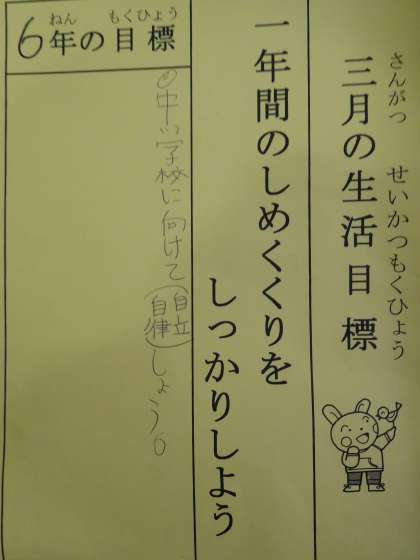 さんがつ せいかつもくひょう
三月の生活目標
一年間のしめくくりを
しっかりしよう
ねん もくひょう
6年の目標
中学校に向けて
自立
自律
しょう。